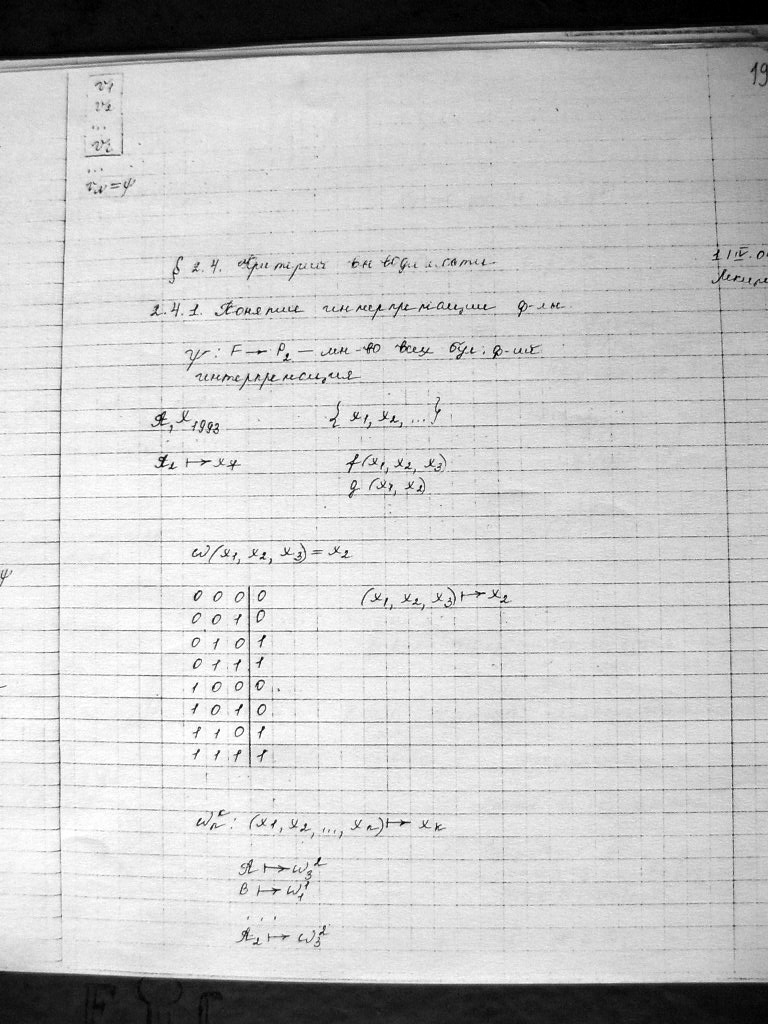 19
v₁
v₂
...
vᵢ
...
v_N = ψ
§ 2.4. Критерий выводимости
2.4.1. Понятие интерпретации ф-лы.
ψ: F → P₂ — мн-во всех бул. ф-ий
интерпретация
𝒜, X₁₉₉₃ { x₁, x₂, ... }
f(x₁, x₂, x₃)
g (x₁, x₂)
ω(x₁, x₂, x₃) = x₂
ψ
0 0 0 | 0 (x₁, x₂, x₃) ↦ x₂
0 0 1 | 0
0 1 0 | 1
0 1 1 | 1
1 0 0 | 0
1 0 1 | 0
1 1 0 | 1
1 1 1 | 1
ωₙᵏ: (x₁, x₂, ..., xₙ) ↦ xₖ
A ↦ ω₃²
B ↦ ω₁¹
...
A₂ ↦ ω₃²